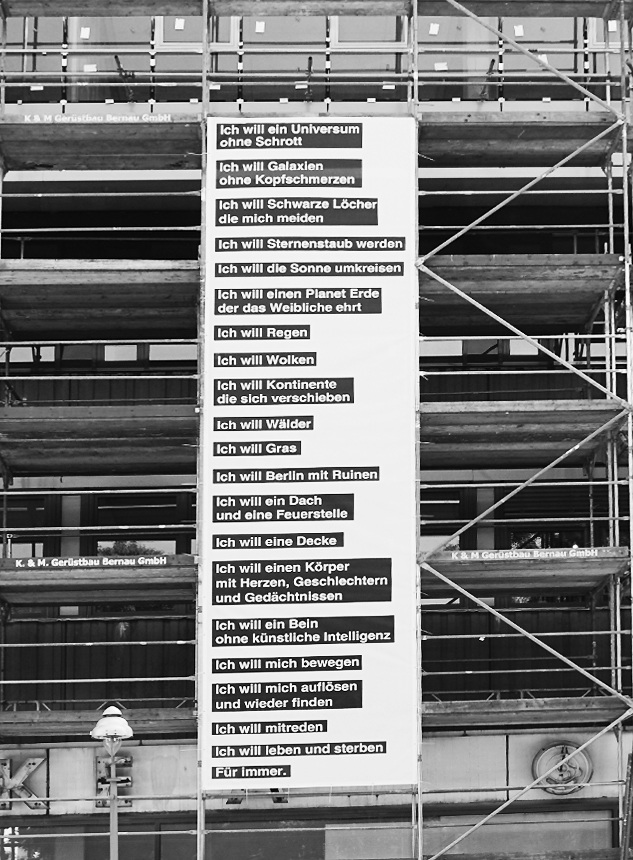 K & M Gerüstbau Bernau GmbH
Ich will ein Universum
ohne Schrott
Ich will Galaxien
ohne Kopfschmerzen
Ich will Schwarze Löcher
die mich meiden
Ich will Sternenstaub werden
Ich will die Sonne umkreisen
Ich will einen Planet Erde
der das Weibliche ehrt
Ich will Regen
Ich will Wolken
Ich will Kontinente
die sich verschieben
Ich will Wälder
Ich will Gras
Ich will Berlin mit Ruinen
Ich will ein Dach
und eine Feuerstelle
Ich will eine Decke
Ich will einen Körper
mit Herzen, Geschlechtern
und Gedächtnissen
Ich will ein Bein
ohne künstliche Intelligenz
Ich will mich bewegen
Ich will mich auflösen
und wieder finden
Ich will mitreden
Ich will leben und sterben
Für immer.
K. & M. Gerüstbau Bernau GmbH
K. & M. Gerüstbau Bernau GmbH
K E